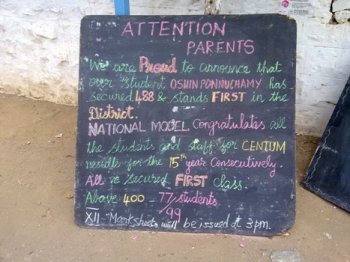 ATTENTION
PARENTS
We are Proud to announce that
our student OSHIN PONNUCHAMY has
Secured 488 & stands FIRST in the
District.
NATIONAL MODEL Congratulates all
the students and staff for CENTUM
results for the 15th year Consecutively.
All've Secured FIRST Class.
Above 400 - 77 students
99
XII - Marksheets will be issued at 3 pm.